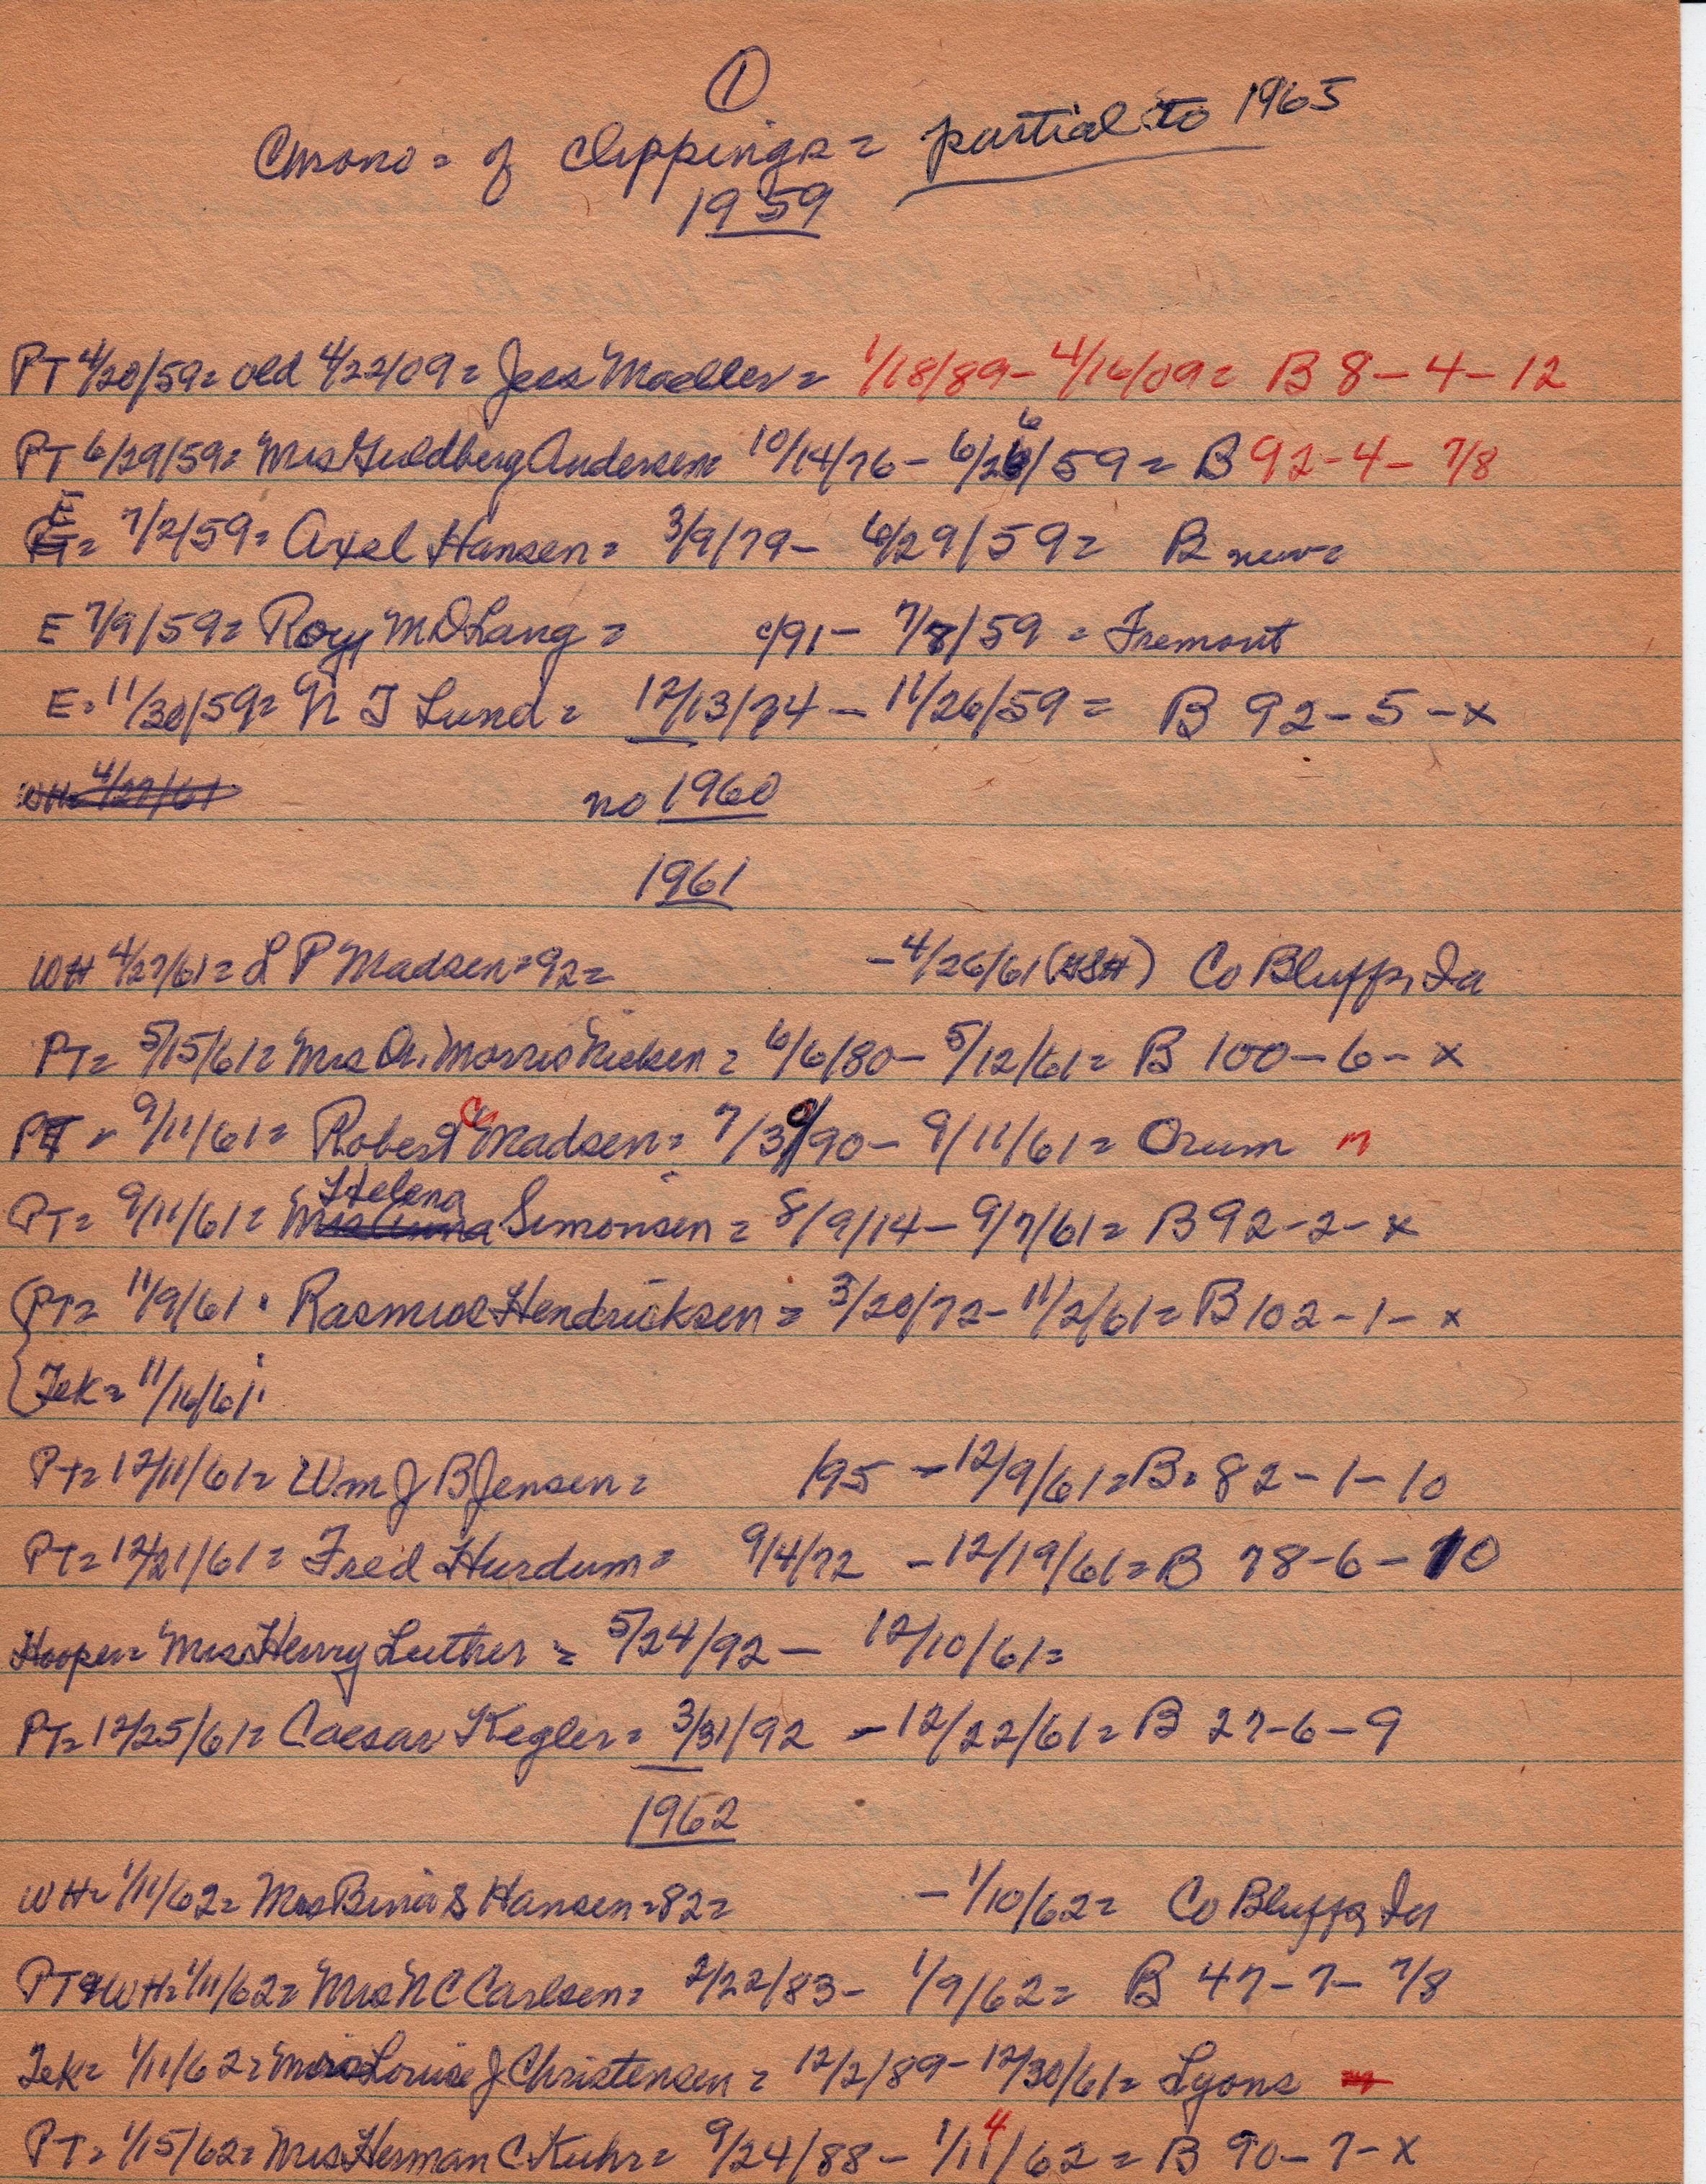 1
Chrono = of clippings = partial to 1965
1959
PT 4/20/59 = old 4/22/09 = Jees Moeller = 1/18/89 - 4/16/09 = B 8 - 4 - 12
PT 6/29/59 = Mrs Guldberg Andersen = 10/14/76 - 6/26/59 = B 92 - 4 - 7/8
E = 7/2/59 = Axel Hansen = 3/9/79 - 6/29/59 = B new =
E 7/9/59 = Roy M D Lang = c/91 - 7/8/59 = Fremont
E = 11/30/59 = N J Lund = 12/13/74 - 11/26/59 = B 92 - 5 - x
WH = 4/27/61 no 1960
1961
WH 4/27/61 = L P Madsen = 92 = - 4/26/61 (HSH) Co Bluffs, Ia
PT = 5/15/61 = Mrs Dr. Morris Nielsen = 6/6/80 - 5/12/61 = B 100 - 6 - x
PT = 9/11/61 = Robert C Madsen = 7/30/90 - 9/11/61 = Orum m
PT = 9/11/61 = Mrs Anna Helena Simonsen = 8/9/14 - 9/7/61 = B 92 - 2 - x
PT = 11/9/61 . Rasmus Hendricksen = 3/20/72 - 11/2/61 = B 102 - 1 - x
Tek = 11/16/61
PT = 12/11/61 = Wm J B Jensen = /95 - 12/9/61 = B = 82 - 1 - 10
PT = 12/21/61 = Fred Hurdum = 9/4/72 - 12/19/61 = B 78 - 6 - 10
Hooper = Mrs Henry Luther = 5/24/92 - 12/10/61 =
PT = 12/25/61 = Caesar Kegler = 3/31/92 - 12/22/61 = B 27 - 6 - 9
1962
WH = 1/11/62 = Mrs Bina S Hansen = 82 = - 1/10/62 = Co Bluffs, Ia
PT & WH = 1/11/62 = Mrs N C Carlsen = 2/22/83 - 1/9/62 = B 47 - 7 - 7/8
Tek = 1/11/62 = Louise J Christensen = 12/2/89 - 12/30/61 = Lyons m
PT = 1/15/62 = Mrs Herman C. Kuhr = 9/24/88 - 1/14/62 = B 90 - 7 - x